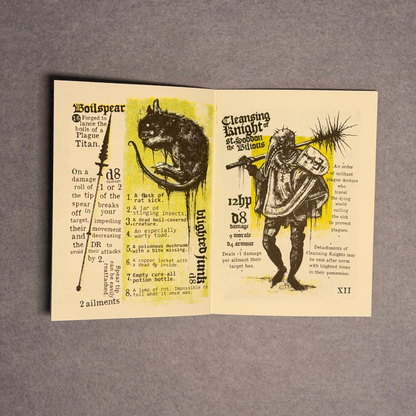 Boilspear
Forged to
lance the
boils of a
Plague
Titan.
On a
damage
roll of
the tip
spear
off
target,
their
and the
avoid
d8
damage
1 or 2
of the
breaks
your
impeding
movement
decreasing
DR to their
attacks
by 2.
Spear tip
can be easily
reattached.
2 ailments
1. A flask of
rat sick.
2. A jar of
stinging insects.
3. A dead boil-covered
creature.
4. An especially
warty toad.
5. A poisonous mushroom
with a bite missing.
6. A copper locket with
a dead inside.
7. Empty cure-all
potion bottle.
8. A lump of rot. Impossible to
tell what it once was.
blighted junk
d8
Cleansing
Knight of
St. Goddon
the Bilious
12hp
d8
damage
9 morale
d4 armour
Deals -1 damage
per ailment their
target has.
An order
of militant
plague doctors
who
travel
the dying
world
culling
the sick
to prevent
plagues.
Detachments of
Cleansing Knights may
be sent after scvm
with blighted items
in their possession.
XII